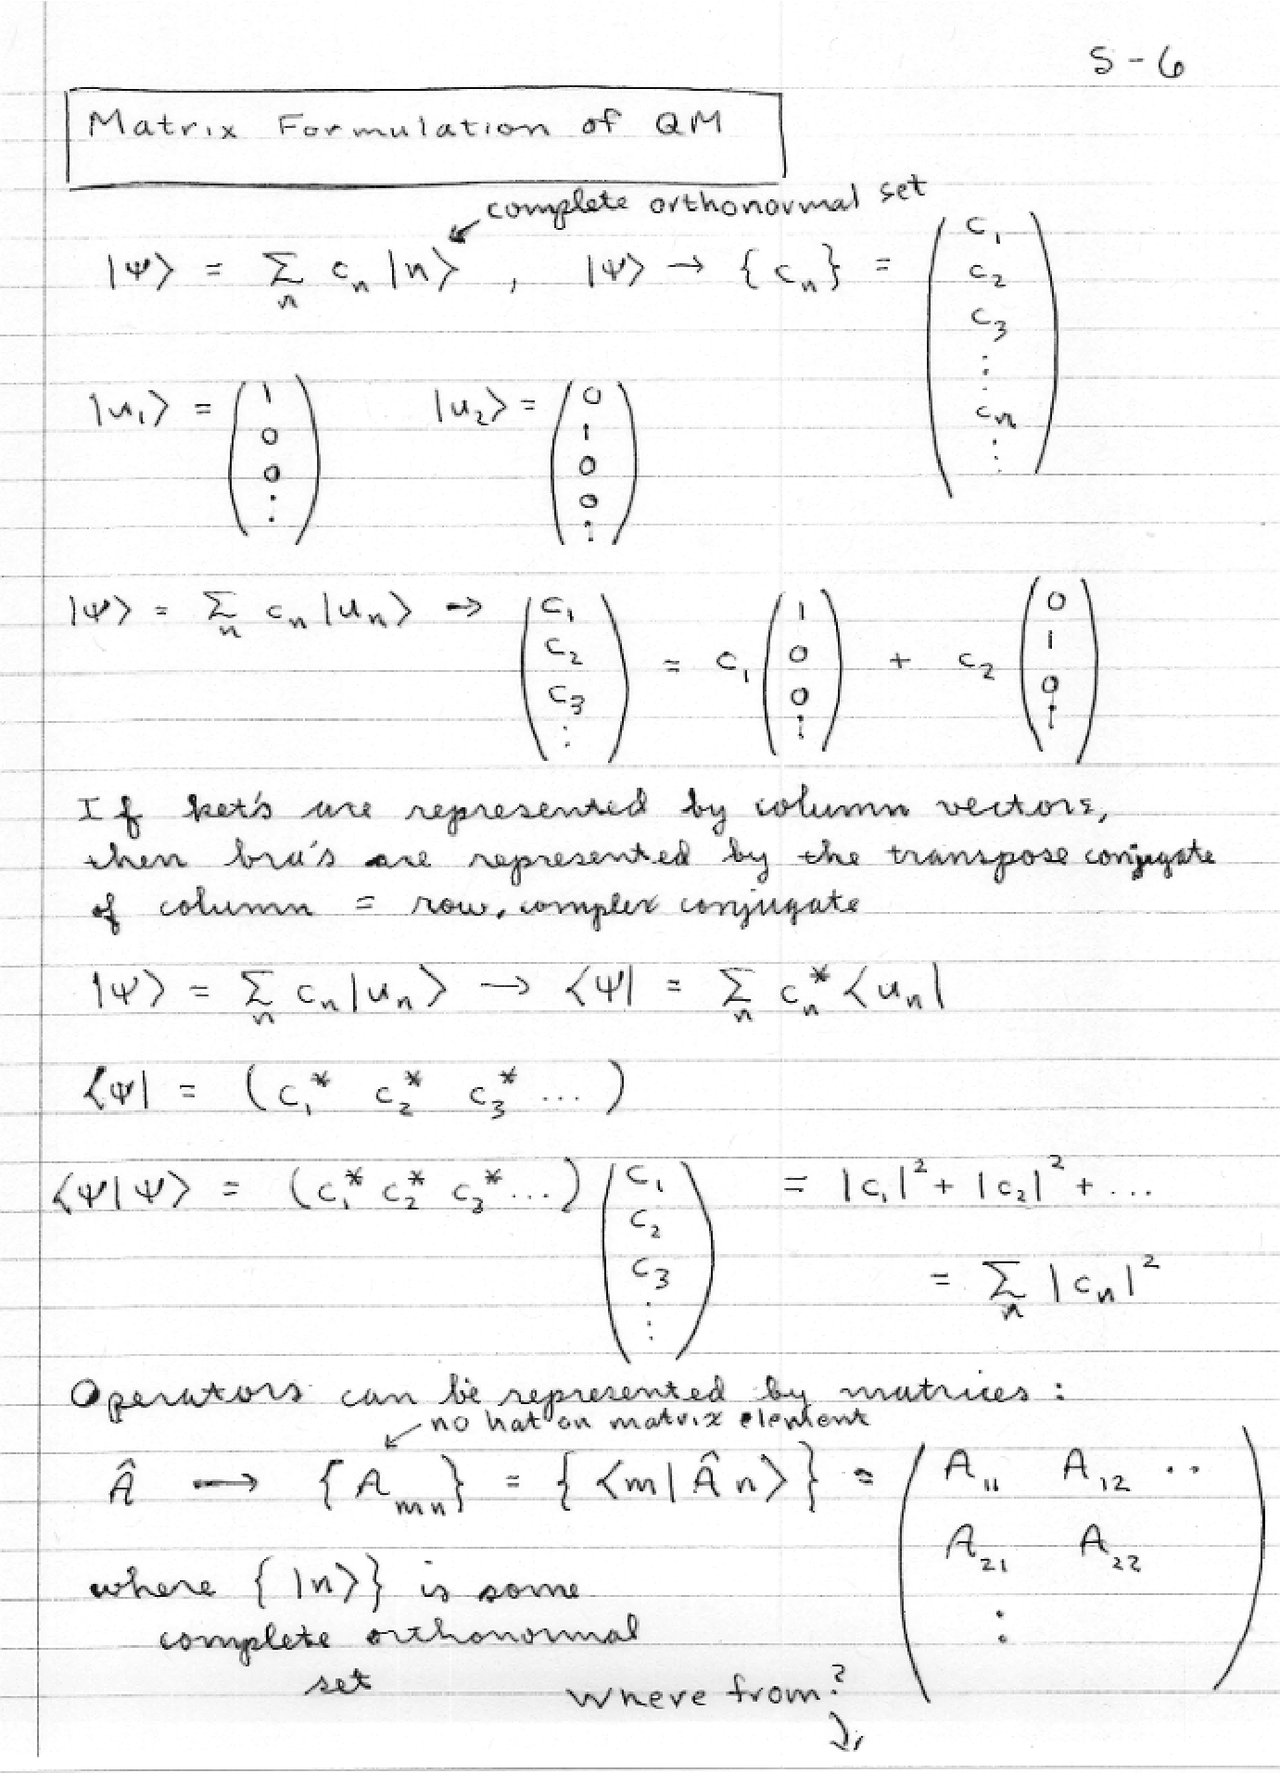 S-6
Matrix Formulation of QM
complete orthonormal set
|Ψ⟩ = Σ_n c_n |n⟩ , |Ψ⟩ → {c_n} = ( c_1 c_2 c_3 ⋮ c_n ⋮ )
|u_1⟩ = ( 1 0 0 ⋮ ) |u_2⟩ = ( 0 1 0 0 ⋮ )
|Ψ⟩ = Σ_n c_n |u_n⟩ → ( c_1 c_2 c_3 ⋮ ) = c_1 ( 1 0 0 ⋮ ) + c_2 ( 0 1 0 ⋮ )
If ket's are represented by column vectors,
then bra's are represented by the transpose conjugate
of column = row, complex conjugate
|Ψ⟩ = Σ_n c_n |u_n⟩ → ⟨Ψ| = Σ_n c_n^* ⟨u_n|
⟨Ψ| = ( c_1^* c_2^* c_3^* ... )
⟨Ψ|Ψ⟩ = ( c_1^* c_2^* c_3^* ... ) ( c_1 c_2 c_3 ⋮ ) = |c_1|^2 + |c_2|^2 + ...
= Σ_n |c_n|^2
Operators can be represented by matrices:
no hat on matrix element
Â → {A_mn} = {⟨m|Ân⟩} = ( A_11 A_12 .. A_21 A_22 ⋮ )
where {|n⟩} is some
complete orthonormal
set
Where from?